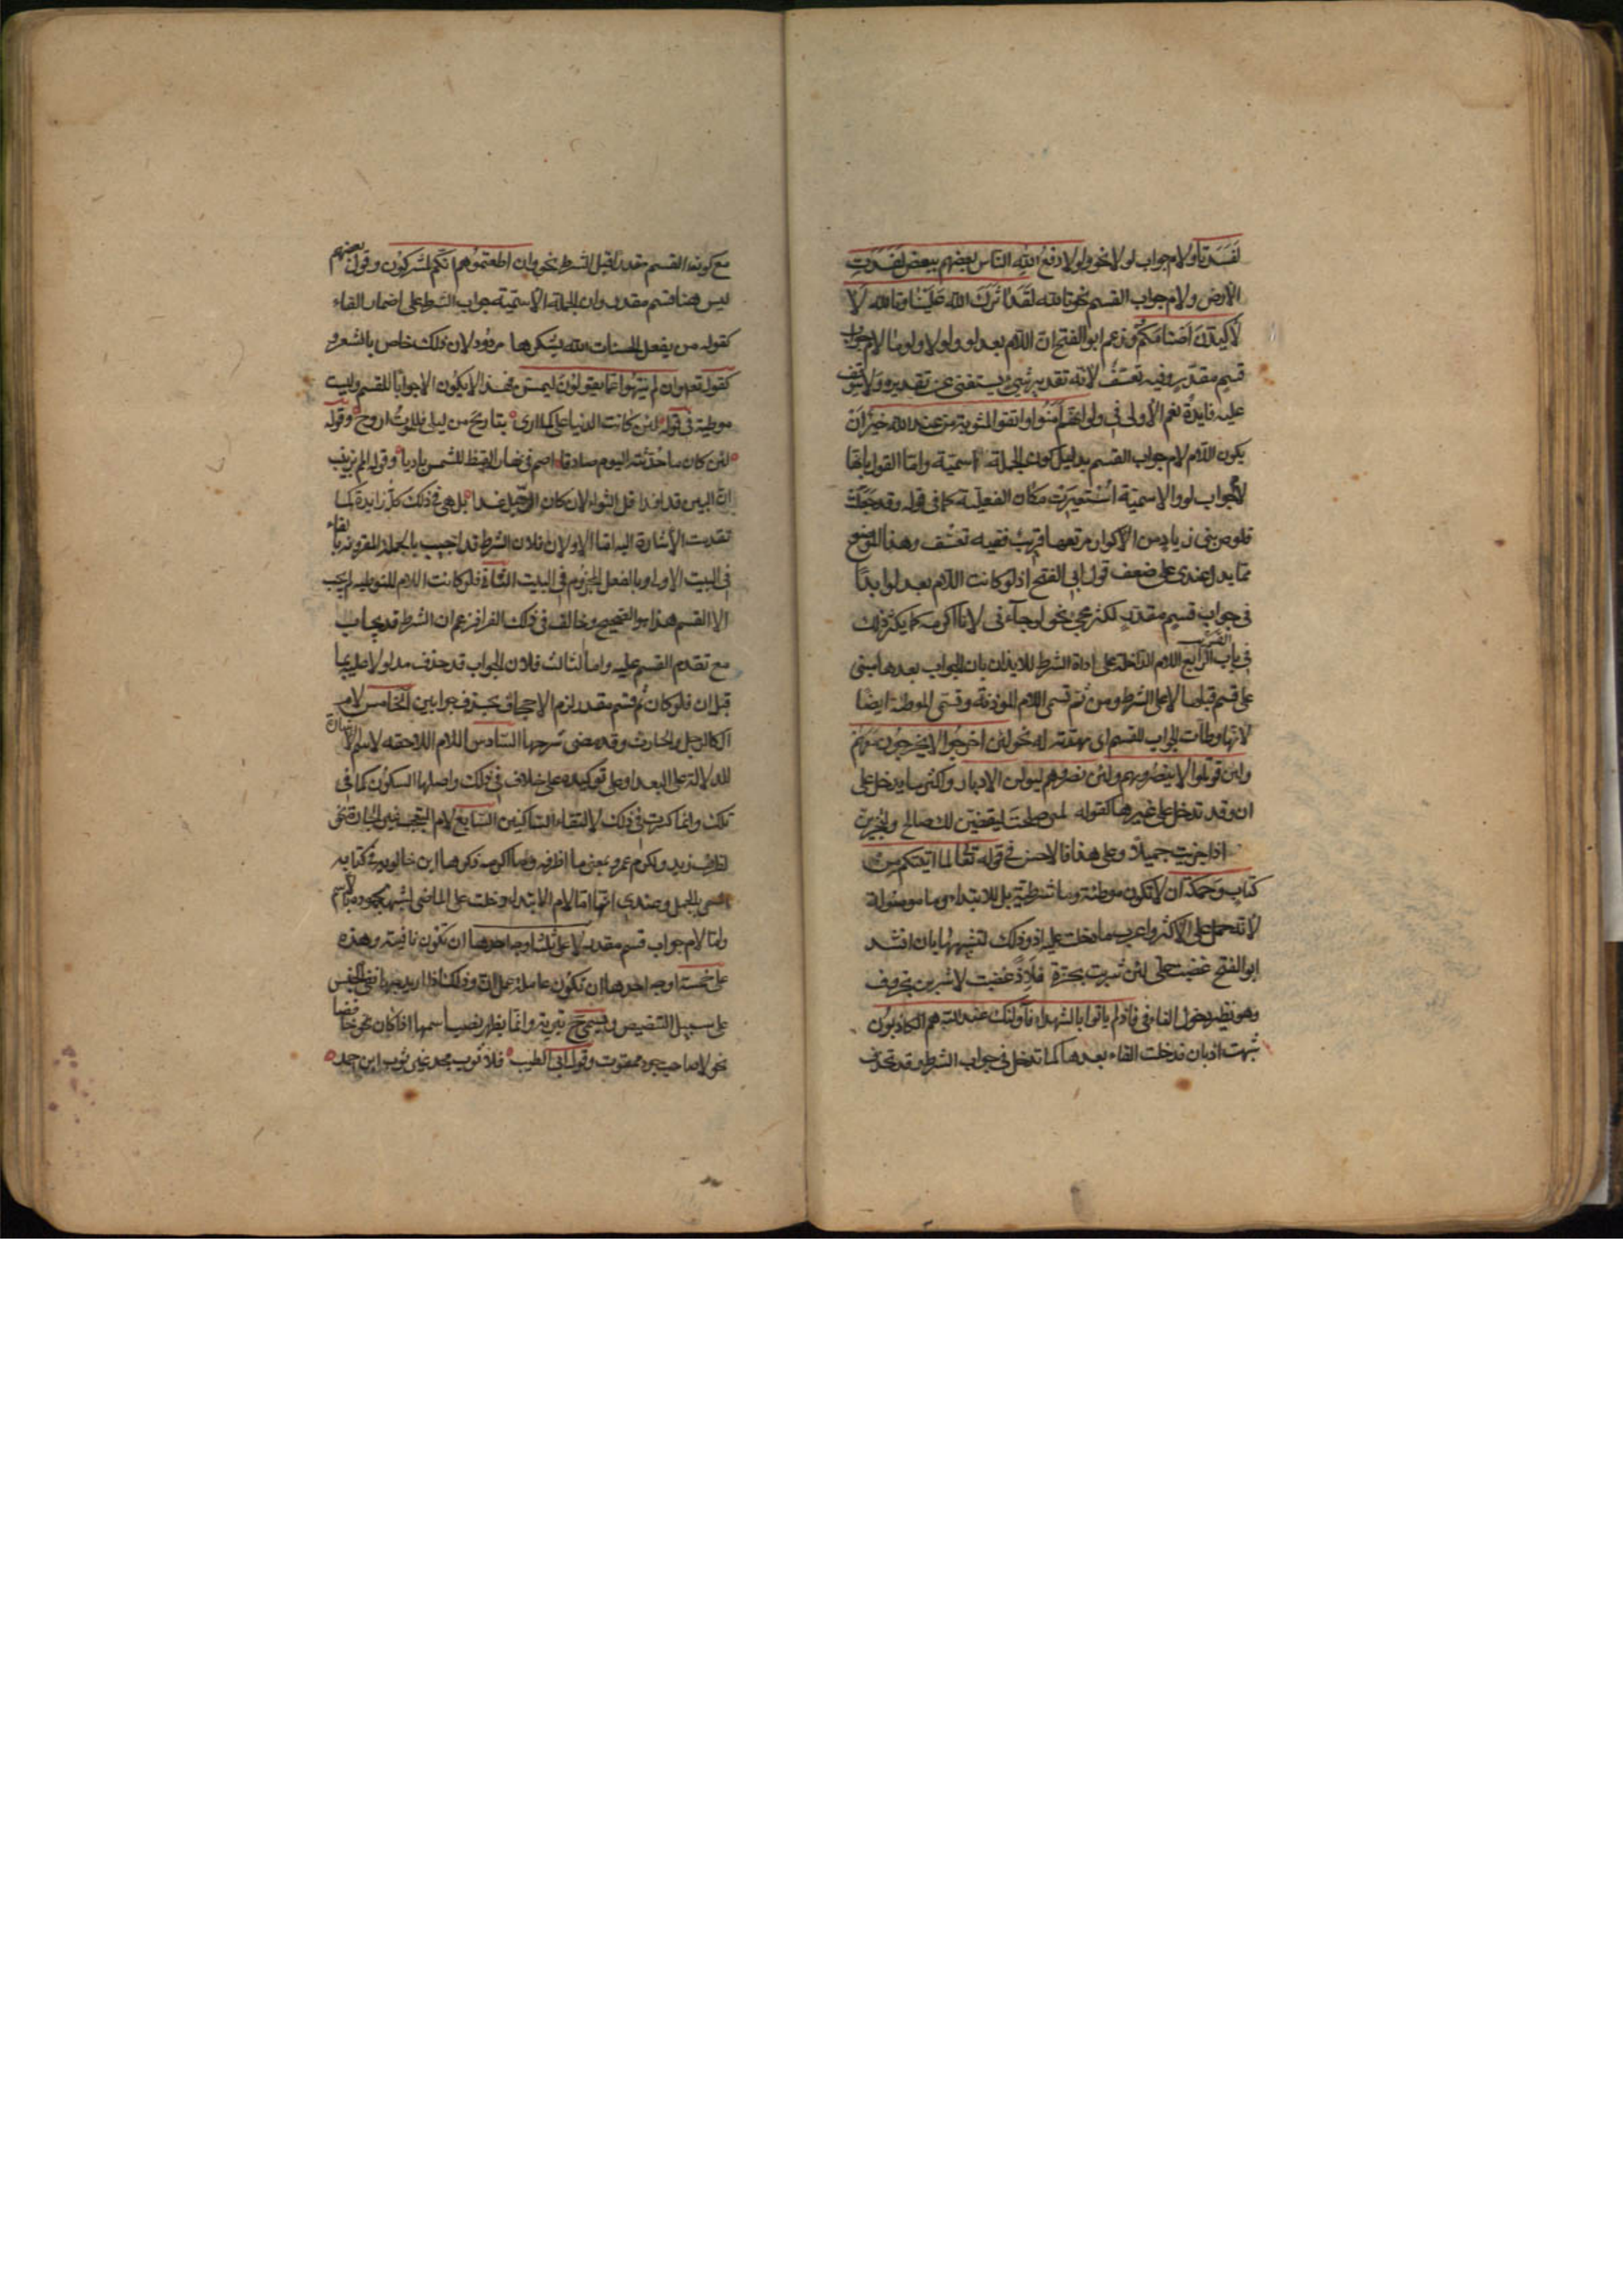 لفسدتا ولام جواب لولا نحو ولولا دفع الله الناس بعضهم ببعض لفسدت
الارض ولام جواب القسم نحو تالله لقد اثرك الله علينا وتالله لا
لاكيدن اصنامكم وزعم ابو الفتح ان اللام بعد لو ولولا ولوما لام جواب
قسم مقدر وفيه تعسف لانه تقدير شيء يستغنى عن تقديره ولا يتوقف
عليه فايدة نعم الاولى في ولو انهم آمنوا واتقوا لمثوبة من عند الله خير ان
يكون اللام لام جواب القسم بدليل كون الجملة اسمية واما القول بانها
لام جواب لو والاسمية استعيرت مكان الفعلية كما في قوله وقد جعلت
قلوص بني زياد من الاكوار مرتعها قريب ففيه تعسف وهذا الموضع
مما يدل عندي على ضعف قول ابي الفتح اذ لو كانت اللام بعد لو ابدا
في جواب قسم مقدر لكثر مجيء نحو لو جاءني لانا اكرمه كما يكثر ذلك
في باب القسم الرابع اللام الداخلة على اداة الشرط للايذان بان الجواب بعدها مبني
على قسم قبلها لا على الشرط ومن ثم تسمى اللام الموذنة وتسمى الموطئة ايضا
لانها وطأت الجواب للقسم اي مهدته له نحو لئن اخرجوا لا يخرجون معهم
ولئن قوتلوا لا ينصرونهم ولئن نصروهم ليولن الادبار واكثر ما يدخل على
ان وقد تدخل على غيرها كقوله لمتى صلحت ليقضين لك صالح ولتجزين
اذا جزيت جميلا وعلى هذا فالاحسن في قوله تعالى لما اتيتكم من
كتاب وحكمة ان لا تكون موطئة وما شرطية بل للابتداء وما موصولة
لانه حمل على الاكثر واغرب ما دخلت عليه اذ وذلك لشبهها بان انشد
ابو الفتح غضبت علي لئن شربت بجزة فلاذ غضبت لاشربن بخروف
وهو نظير دخول الفاء في فاذ لم ياتوا بالشهداء فاولئك عند الله هم الكاذبون
شبهت اذ بان فدخلت الفاء بعدها كما تدخل في جواب الشرط وقد تحذف
مع كون القسم مقدرا قبل الشرط نحو وان اطعتموهم انكم لمشركون وقول بعضهم
ليس هنا قسم مقدر وان الجملة الاسمية جواب الشرط على اضمار الفاء
كقوله من يفعل الحسنات الله يشكرها مردود لان ذلك خاص بالشعر و
كقوله تعالى وان لم ينتهوا عما يقولون ليمسن فهذا لا يكون الا جوابا للقسم وليست
موطئة في قوله لئن كانت الدنيا علي كما ارى تباريح من ليلى فللموت اروح وقوله
لئن كان ما حدثته اليوم صادقا اصم في نهار القيظ للشمس باديا وقوله المم بزينب
ان البين قد افدا قل الثواء لئن كان الرحيل غدا بل هي في ذلك كله زايدة كما
تقدمت الاشارة اليه اما الاولان فلان الشرط قد اجيب بالجملة المقرونة بالفاء
في البيت الاول وبالفعل المجزوم في البيت الثاني فلو كانت اللام للتوطئة لم يجب
الا القسم هذا هو الصحيح وخالف في ذلك الفرا فزعم ان الشرط قد يجاب
مع تقدم القسم عليه واما الثالث فلان الجواب قد حذف مدلولا عليه بما
قبل ان فلو كان ثم قسم مقدر لزم الاجحاف بحذف جوابين الخامس لام
ال كالرجل والحارث وقد مضى شرحها السادس اللام اللاحقة لاسماء الاشارة
للدلالة على البعد او على توكيده على خلاف في ذلك واصلها السكون كما في
تلك وانما كسرت في ذلك لالتقاء الساكنين السابع لام التعجب غير الجارة نحو
لظرف زيد ولكرم عمرو بمعنى ما اظرفه وما اكرمه ذكرها ابن خالويه في كتابه
المسمى بالجمل وعندي انها اما لام الابتداء دخلت على الماضي لشبهه لجموده بالاسم
واما لام جواب قسم مقدر لا على ثلثة اوجه احدها ان تكون نافية وهذه
على خمسة اوجه احدها ان تكون عاملة عمل ان وذلك اذا اريد بها نفي الجنس
على سبيل التنصيص وتسمى ح تبرية وانما يظهر نصب اسمها اذا كان خافضا
نحو لا صاحب جود ممقوت وقول ابي الطيب فلا ثوب مجد غير ثوب ابن احمد